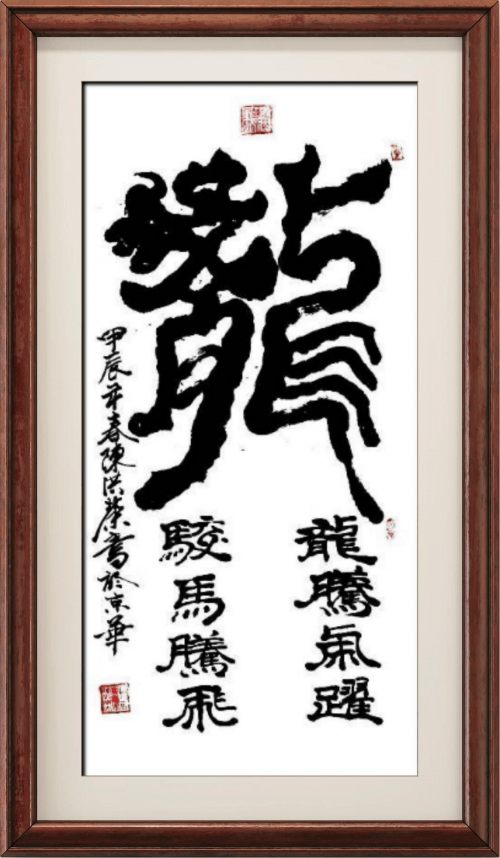 龍
龍騰氣躍
駿馬騰飛
甲辰年春陳洪榮寫於京華